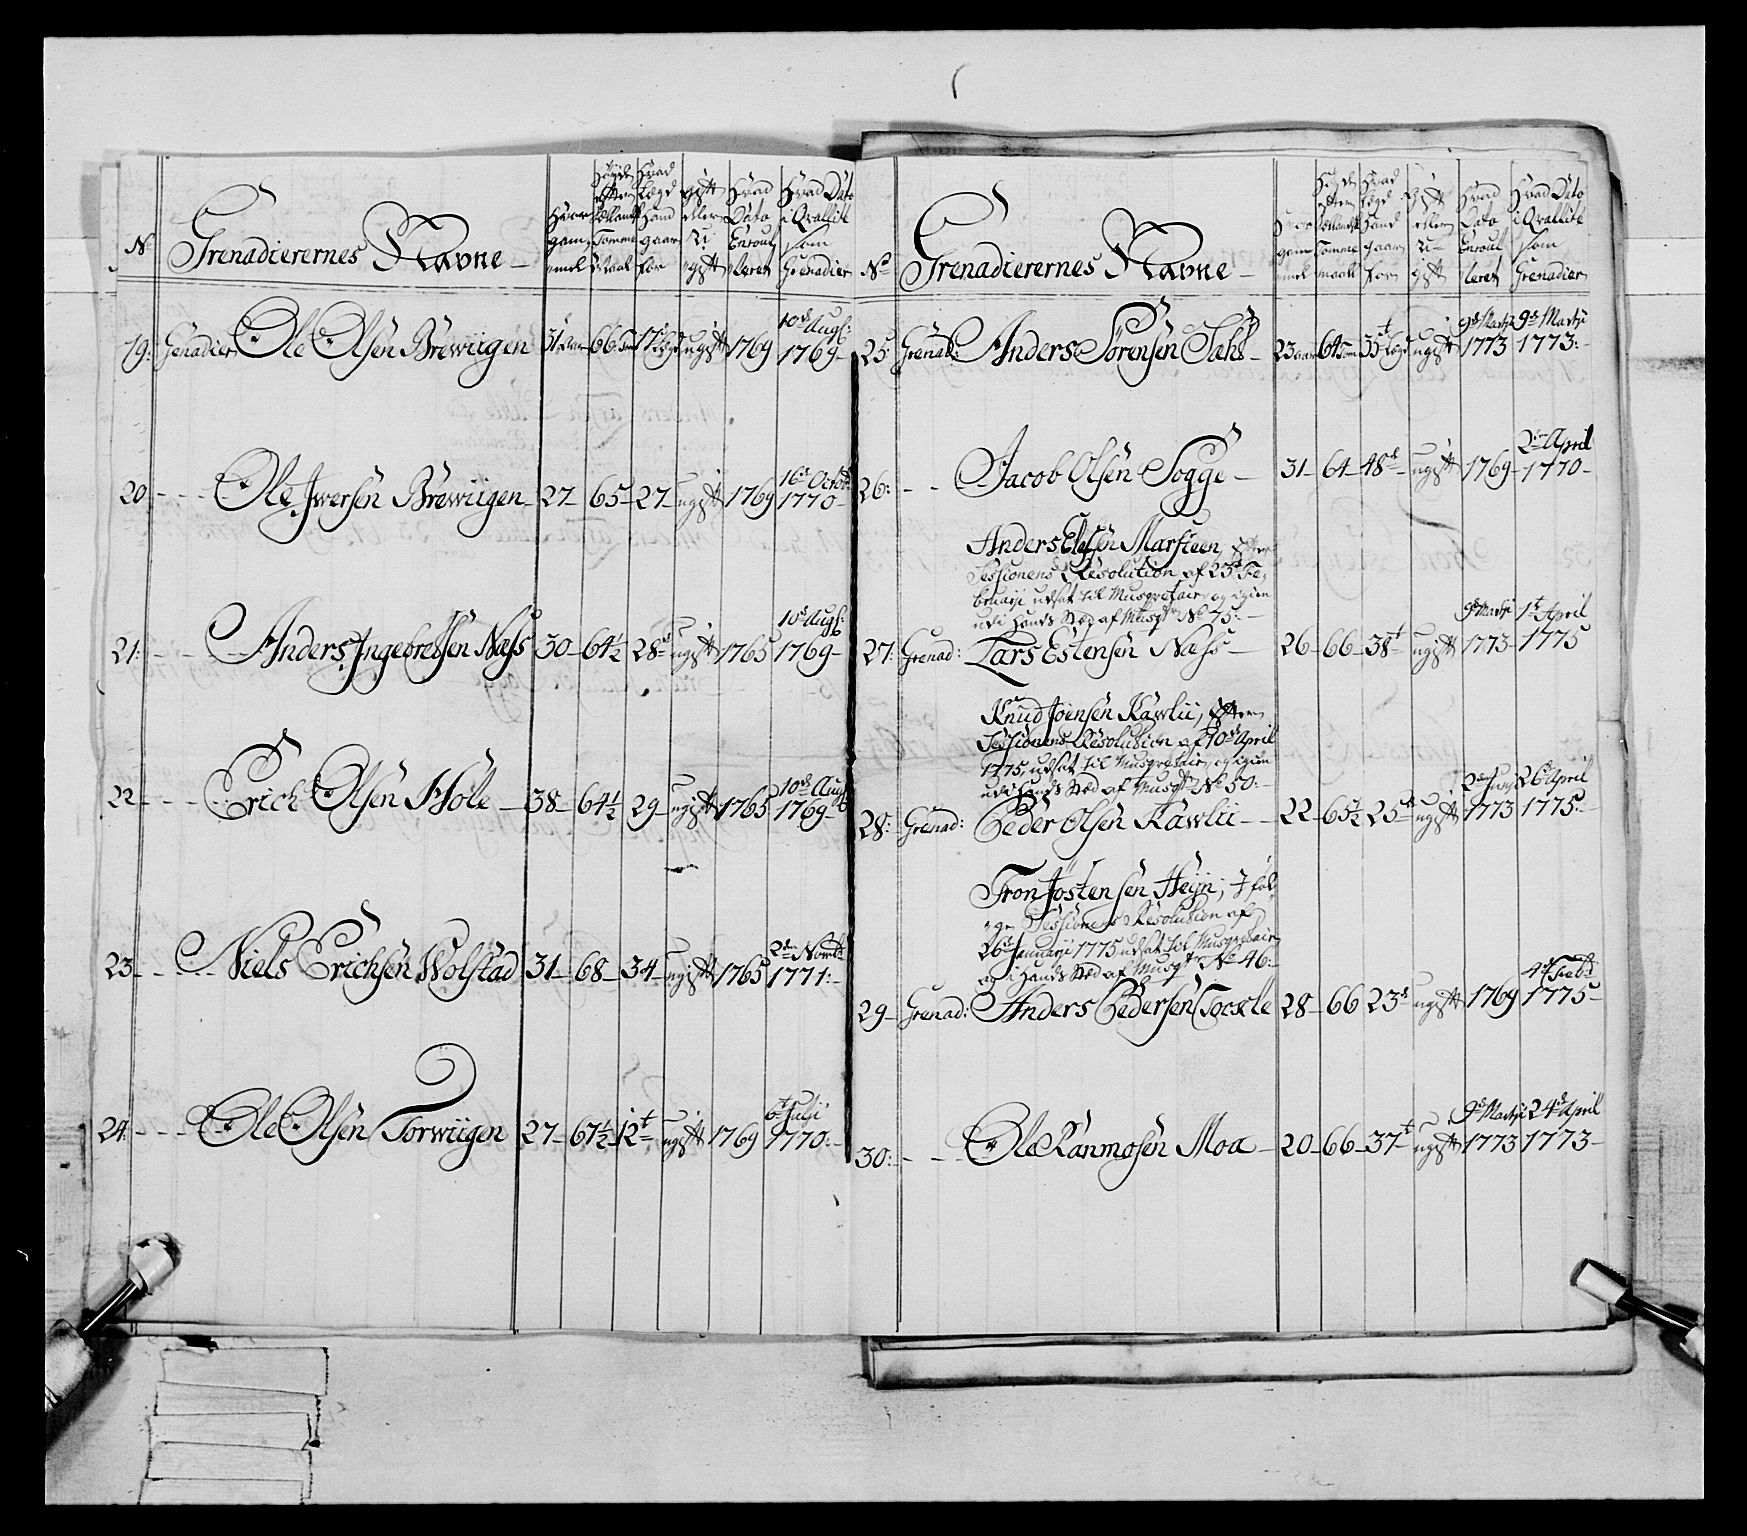 No
Grenadierernes Navne
Hvor
gam-
mel
Høyde
efter
Sællandsk
Tomme
Maal
Hvad
Lægd
Hand
gaar
for
gift
eller
U
gift
Hvad
Dato
Enroul
leret
Hvad Dato
i Qvallite
som
Grenadier
19: Genadier Ole Olsen Brewiigen 31 Aar 66 Tom 17 Lægd ugift 1769 10de Augs: 1769
20 - - - Ole Iwersen Brewiigen 27 65 27 ugift 1769 16de Octob: 1770
21: - - - Anders Ingebretsen Næss 30 64½ 28de ugift 1765 10de Augs: 1769
22 - - - Erich Olsen Hole 38 64½ 29 ugift 1765 10de Augs 1769
23 - - - Niels Erichsen Wolstad 31 68 34 ugift 1765 2den Novb: 1771:
24 - - - Ole Olsen Torwiigen 27 67½ 12t ugift 1769 6t July 1770:
No
Grenadierernes Navne
Hvor
gam
mel
Høyde
efter
Sællandsk
Tomme
maall
Hvad
Lægd
Hand
gaar
for
Gift
eller
U-
gift
Hvad
Dato
Enroul
leret
Hvad Dato
i Qvallite
som
Grenadier
25 Grenad: Anders Sørensen Sæhs 23 aar 64 Tom 35t Lægd ugift 9de Martji 1773 9de Martji 1773:
26: - - - Jacob Olsen Sogge 31 64 48de ugift 1769 2den April 1770
Anders Elefsen Marsteen, efter
Sessionens Resolution af 25de Fe-
bruarji udsat til Musqvetair, og igien
udi Hands Sted af Musqt: No 75:
27: Grenad: Lars Estensen Næss 26 66 38t ugift 9de Martji 1773 1t April 1775
Knud Joensen Kawlii, Efter
Sessionens Resolution af 10de April
1775, udsat til Musqvetair, og igien
udi Hands Sted af Musqt: No 50:
28: Grenad: Peder Olsen Kawlii 22 65½ 25de ugift 1773 26de April 1775:
Tron Jostensen Heyn; I føl-
ge Sessionens Resolution af
26de Januarji 1775 udsat til Musqvetair
og i Hands Sted af Musqt: No 46:
29 Grenad: Anders Pedersen 28 66 23de ugift 1769 4de Feeb: 1775
30: - - - Ole Ranmosen Moa 20 66 37t ugift 9de Martji 1773 24de April 1773